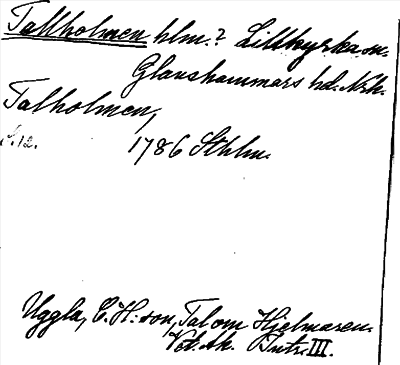 Tallholmen hlm.? Lillkyrka sn.
Glanshammars hd. Nrk.
Talholmen,
s. 12. 1786 Sthlm.
Uggla, C. H:son, Tal om Hjelmaren.
Vet. Ak. Intr. III.